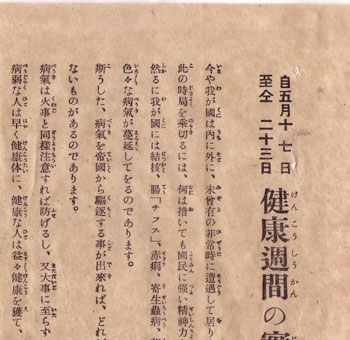 自五月十七日
至仝二十三日
健康週間の
今や我が國は内に外に、未曾有の非常時に遭遇して居り
此の時局を乗切るには、何は措いても國民に强い精神力
然るに我が國には結核、腸「チフス」、赤痢、寄生蟲病、
色々な病氣が蔓延してをるのであります。
斯うした、病氣を帝國から驅逐する事が出來れば、どれ
ないものがあるのであります。
病氣は火事と同樣注意すれば防げるし、又大事に至らず
病弱な人は早く健康体に、健康な人は益々健康を獲て、